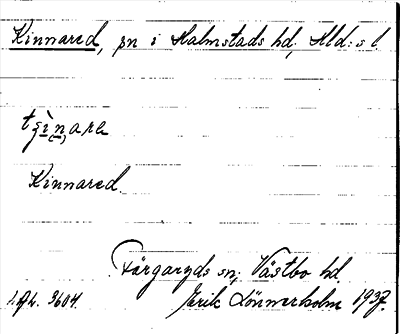 Kinnared, sn i Halmstads hd, Hld:s l.
tʒìn̲are
Kinnared.
Färgaryds sn, Västbo hd.
Erik Lönnerholm 1937.